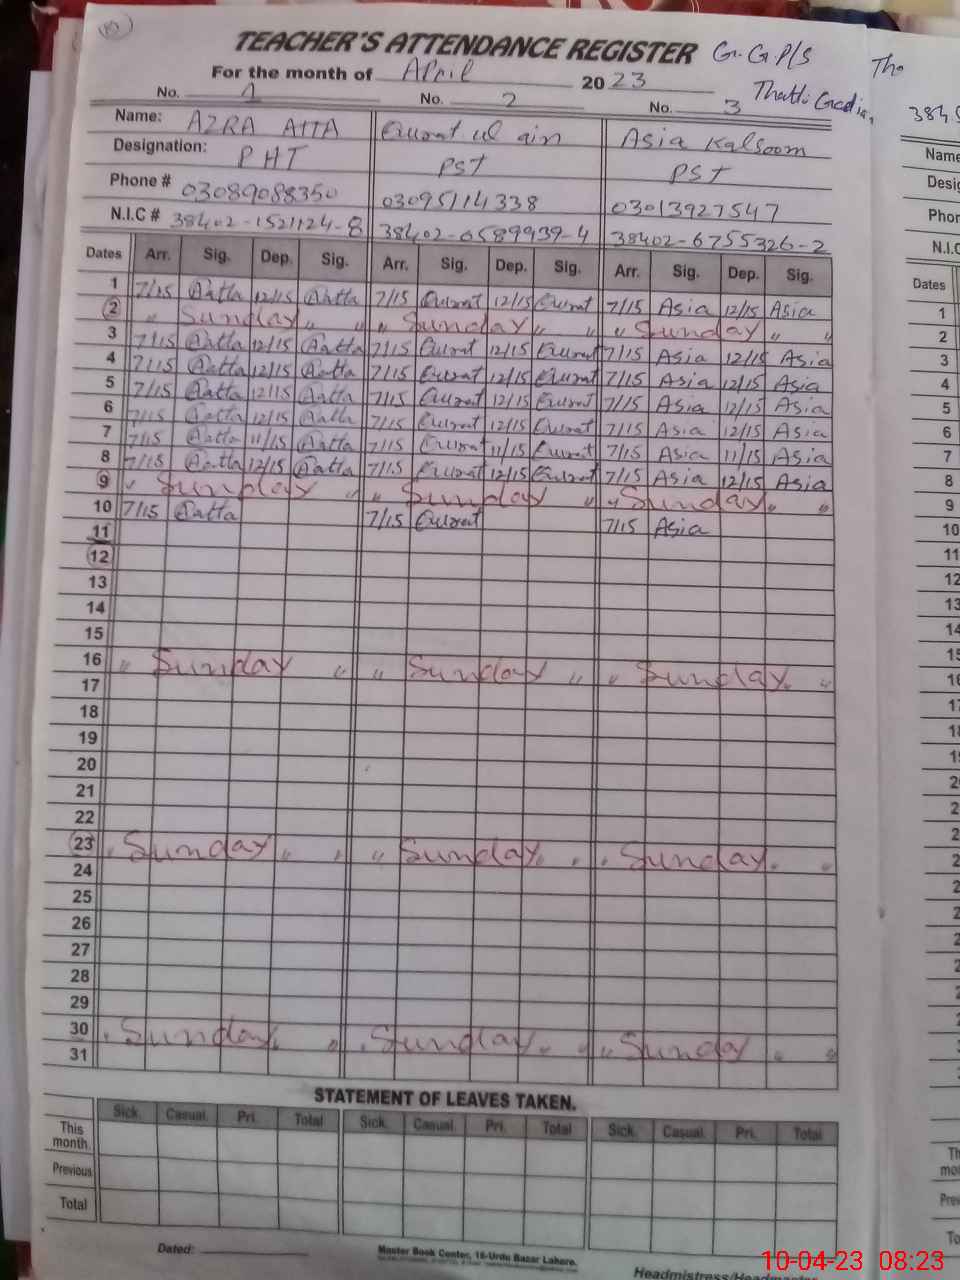 TEACHER'S ATTENDANCE REGISTER G.G P/S
For the month of April 2023 Thatti
No. 1 No. 2 No. 3
Name: AZRA ATTA Qurat ul ain Asia Kalsoom
Designation: PHT PST PST
Phone # 03089088350 03095114338 03013927547
N.I.C # 38402-1521124-8 38402-0589939-4 38402-6755326-2
Dates Arr. Sig. Dep. Sig. Arr. Sig. Dep. Sig. Arr. Sig. Dep. Sig.
1 7/15 Aatta 12/15 Aatta 7/15 Qurat 12/15 Qurat 7/15 Asia 12/15 Asia
2 " Sunday " " " Sunday " " " Sunday " "
3 7/15 Aatta 12/15 Aatta 7/15 Qurat 12/15 Qurat 7/15 Asia 12/15 Asia
4 7/15 Aatta 12/15 Aatta 7/15 Qurat 12/15 Qurat 7/15 Asia 12/15 Asia
5 7/15 Aatta 12/15 Aatta 7/15 Qurat 12/15 Qurat 7/15 Asia 12/15 Asia
6 7/15 Aatta 12/15 Aatta 7/15 Qurat 12/15 Qurat 7/15 Asia 12/15 Asia
7 7/15 Aatta 11/15 Aatta 7/15 Qurat 11/15 Qurat 7/15 Asia 11/15 Asia
8 7/15 Aatta 12/15 Aatta 7/15 Qurat 12/15 Qurat 7/15 Asia 12/15 Asia
9 " Sunday " " Sunday " " Sunday " "
10 7/15 Aatta 7/15 Qurat 7/15 Asia
11
12
13
14
15
16 " Sunday " " Sunday " " Sunday " "
17
18
19
20
21
22
23 " Sunday " " " Sunday " " " Sunday " "
24
25
26
27
28
29
30 " Sunday " " " Sunday " " " Sunday " "
31
STATEMENT OF LEAVES TAKEN.
Sick. Casual. Pri. Total Sick. Casual. Pri. Total Sick. Casual. Pri. Total
This month
Previous
Total
Dated:
Master Book Center, 16-Urdu Bazar Lahore.
10-04-23 08:23
Name
Phon
N.I.C
Dates
1
2
3
4
5
6
7
8
9
10
11
12